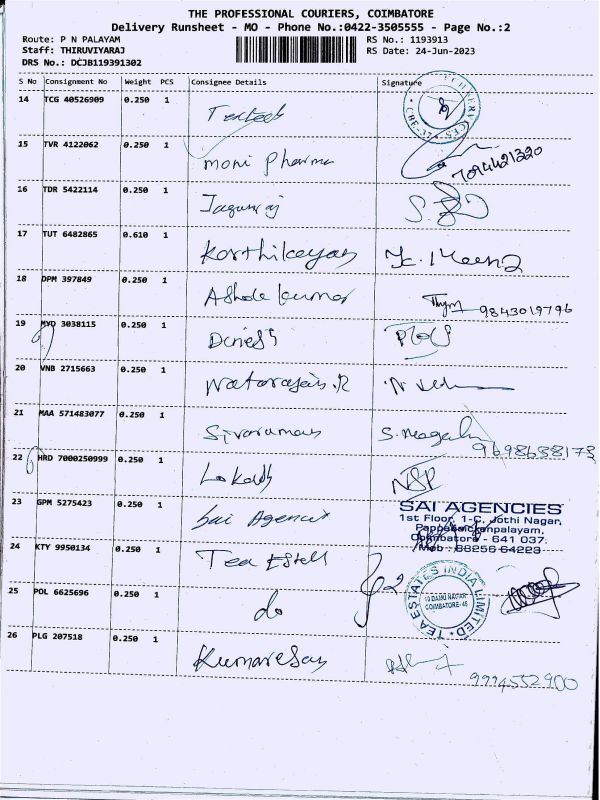 THE PROFESSIONAL COURIERS, COIMBATORE
Delivery Runsheet - MO - Phone No.:0422-3505555 - Page No.:2
Route: P N PALAYAM
RS No.: 1193913
Staff: THIRUVIYARAJ
RS Date: 24-Jun-2023
DRS No.: DCJB119391302
S No Consignment No Weight PCS Consignee Details Signature
14 TCG 40526909 0.250 1
15 TVR 4122062 0.250 1 moni Pharma
16 TDR 5422114 0.250 1 Jaganraj
17 TUT 6482865 0.610 1 Karthikeyan
18 DPM 397849 0.250 1 Ashok kumar 9843019796
19 MYD 3038115 0.250 1 Dinesh
20 VNB 2715663 0.250 1 Natarajan.R
21 MAA 571483077 0.250 1 Sivaraman
22 HRD 7000250999 0.250 1 Lokesh
23 GPM 5275423 0.250 1 Sai Agencies
SAI AGENCIES
1st Floor, 1-C, Jothi Nagar,
Pappanaickenpalayam,
Coimbatore - 641 037.
Mob : 88256 64223
24 KTY 9950134 0.250 1 Tea Estates
25 POL 6625696 0.250 1 do
TEA ESTATES INDIA LIMITED
COIMBATORE-45
26 PLG 207518 0.250 1 Kumaresan 9994552900